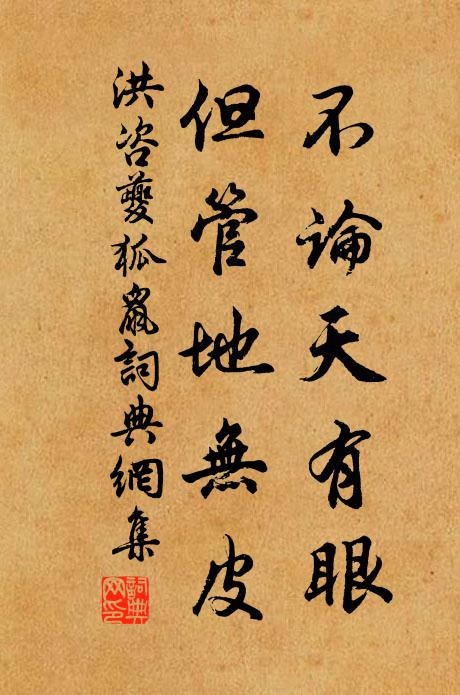 不論天有眼
但管地無皮
洪咨夔狐鼠詞典網集
詞典
网印